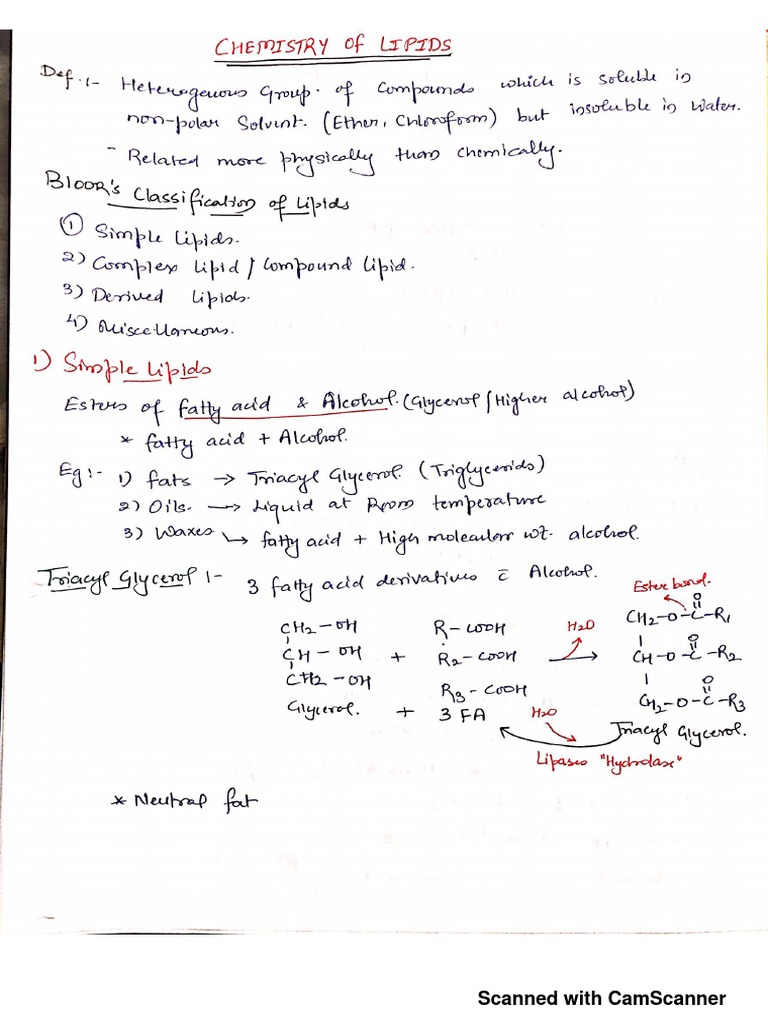 CHEMISTRY Of LIPIDS
Def :- Heterogenous Group of Compounds which is soluble in
non-polar Solvent. (Ether, Chloroform) but insoluble in Water.
- Related more physically than chemically.
Bloor's Classification of Lipids
1 Simple Lipids.
2) Complex Lipid / Compound Lipid.
3) Derived Lipids.
4) Miscellaneous.
1) Simple Lipids
Esters of fatty acid & Alcohol. (Glycerol / Higher alcohol)
* fatty acid + Alcohol.
Eg :- 1) fats → Triacyl Glycerol (Triglycerids)
2) Oils → Liquid at Room temperature
3) Waxes ↳ fatty acid + High molecular wt. alcohol.
Triacyl Glycerol :- 3 fatty acid derivatives c̄ Alcohol.
Ester bond.
CH2 - OH R - COOH H2O CH2 - O - C - R1
O
CH - OH + R2 - COOH → CH - O - C - R2
O
CH2 - OH R3 - COOH CH2 - O - C - R3
O
Glycerol. + 3 FA H2O Triacyl Glycerol.
Lipases "Hydrolase"
* Neutral fat
Scanned with CamScanner